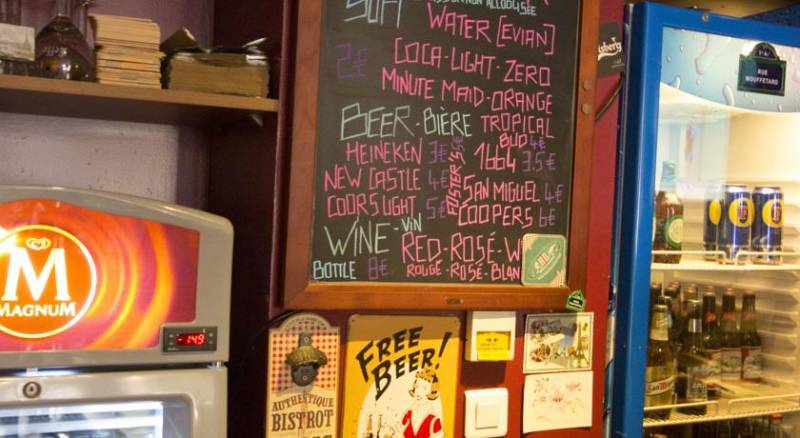 SOFT
NON ALCOOLISÉE
WATER [EVIAN]
2€ COCA-LIGHT-ZERO
MINUTE MAID-ORANGE
TROPICAL
BEER-BIÈRE
BUD 4€
HEINEKEN 3€
1664 3.5€
NEW CASTLE 4€
FOSTER'S
SAN MIGUEL 4€
COORS LIGHT 5€
COOPERS 6€
WINE-VIN
RED-ROSÉ-W
BOTTLE 8€
ROUGE-ROSÉ-BLAN
Carlsberg
RUE
MOUFFETARD
M
MAGNUM
-14.9
FREE
BEER!
AUTHENTIQUE
BISTROT